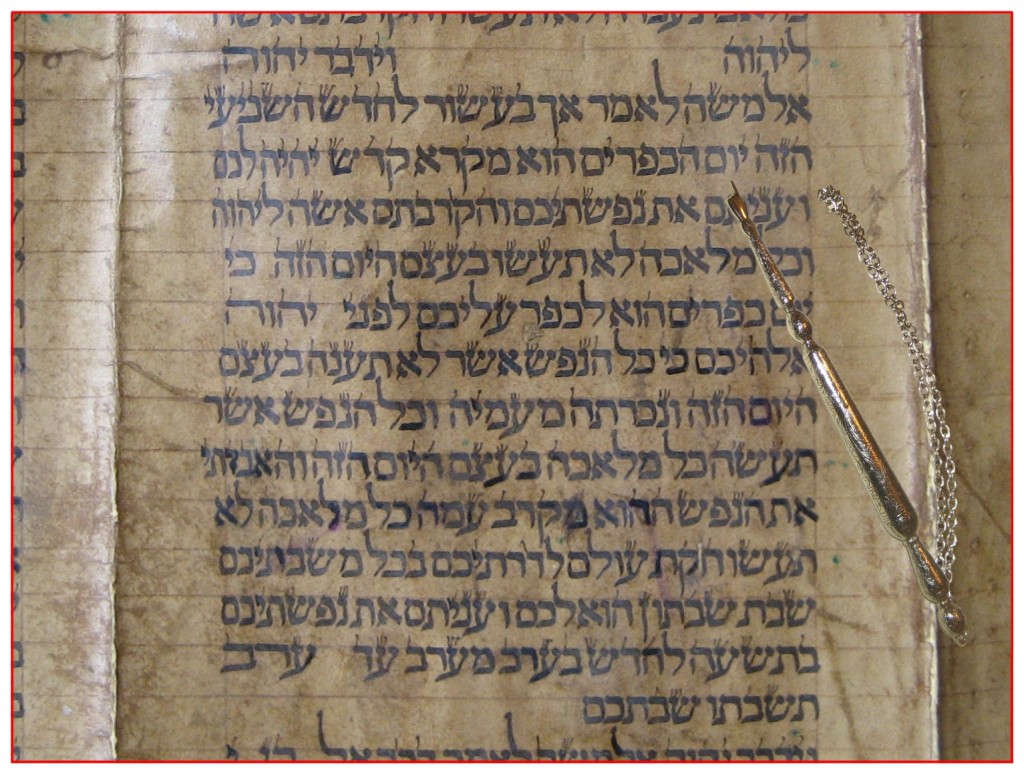 ליהוה וידבר יהוה
אל משה לאמר אך בעשור לחדש השביעי
הזה יום הכפרים הוא מקרא קדש יהיה לכם
ועניתם את נפשתיכם והקרבתם אשה ליהוה
וכל מלאכה לא תעשו בעצם היום הזה כי
יום כפרים הוא לכפר עליכם לפני יהוה
אלהיכם כי כל הנפש אשר לא תענה בעצם
היום הזה ונכרתה מעמיה וכל הנפש אשר
תעשה כל מלאכה בעצם היום הזה והאבדתי
את הנפש ההוא מקרב עמה כל מלאכה לא
תעשו חקת עולם לדרתיכם בכל משבתיכם
שבת שבתון הוא לכם ועניתם את נפשתיכם
בתשעה לחדש בערב מערב עד ערב
תשבתו שבתכם